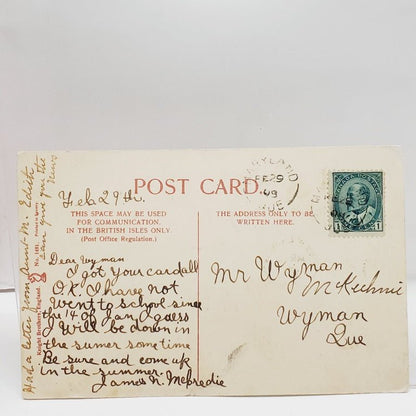 POST CARD.
THIS SPACE MAY BE USED
FOR COMMUNICATION.
IN THE BRITISH ISLES ONLY
(Post Office Regulation).
THE ADDRESS ONLY TO BE
WRITTEN HERE.
Feb 29th.
Dear Wyman
I got your card all
O.K. I have not
went to school since
the 14 of Jan. I guess
I will be down in
the sumer some time
Be sure and come up
in the summer.
James N. McCredie
Mr Wyman
McKechnie
Wyman
Que
Had a letter from Aunt M. Edith
can give you the
news
No. 481.
Knight Brothers, England.
FE 29
QUE
1
1